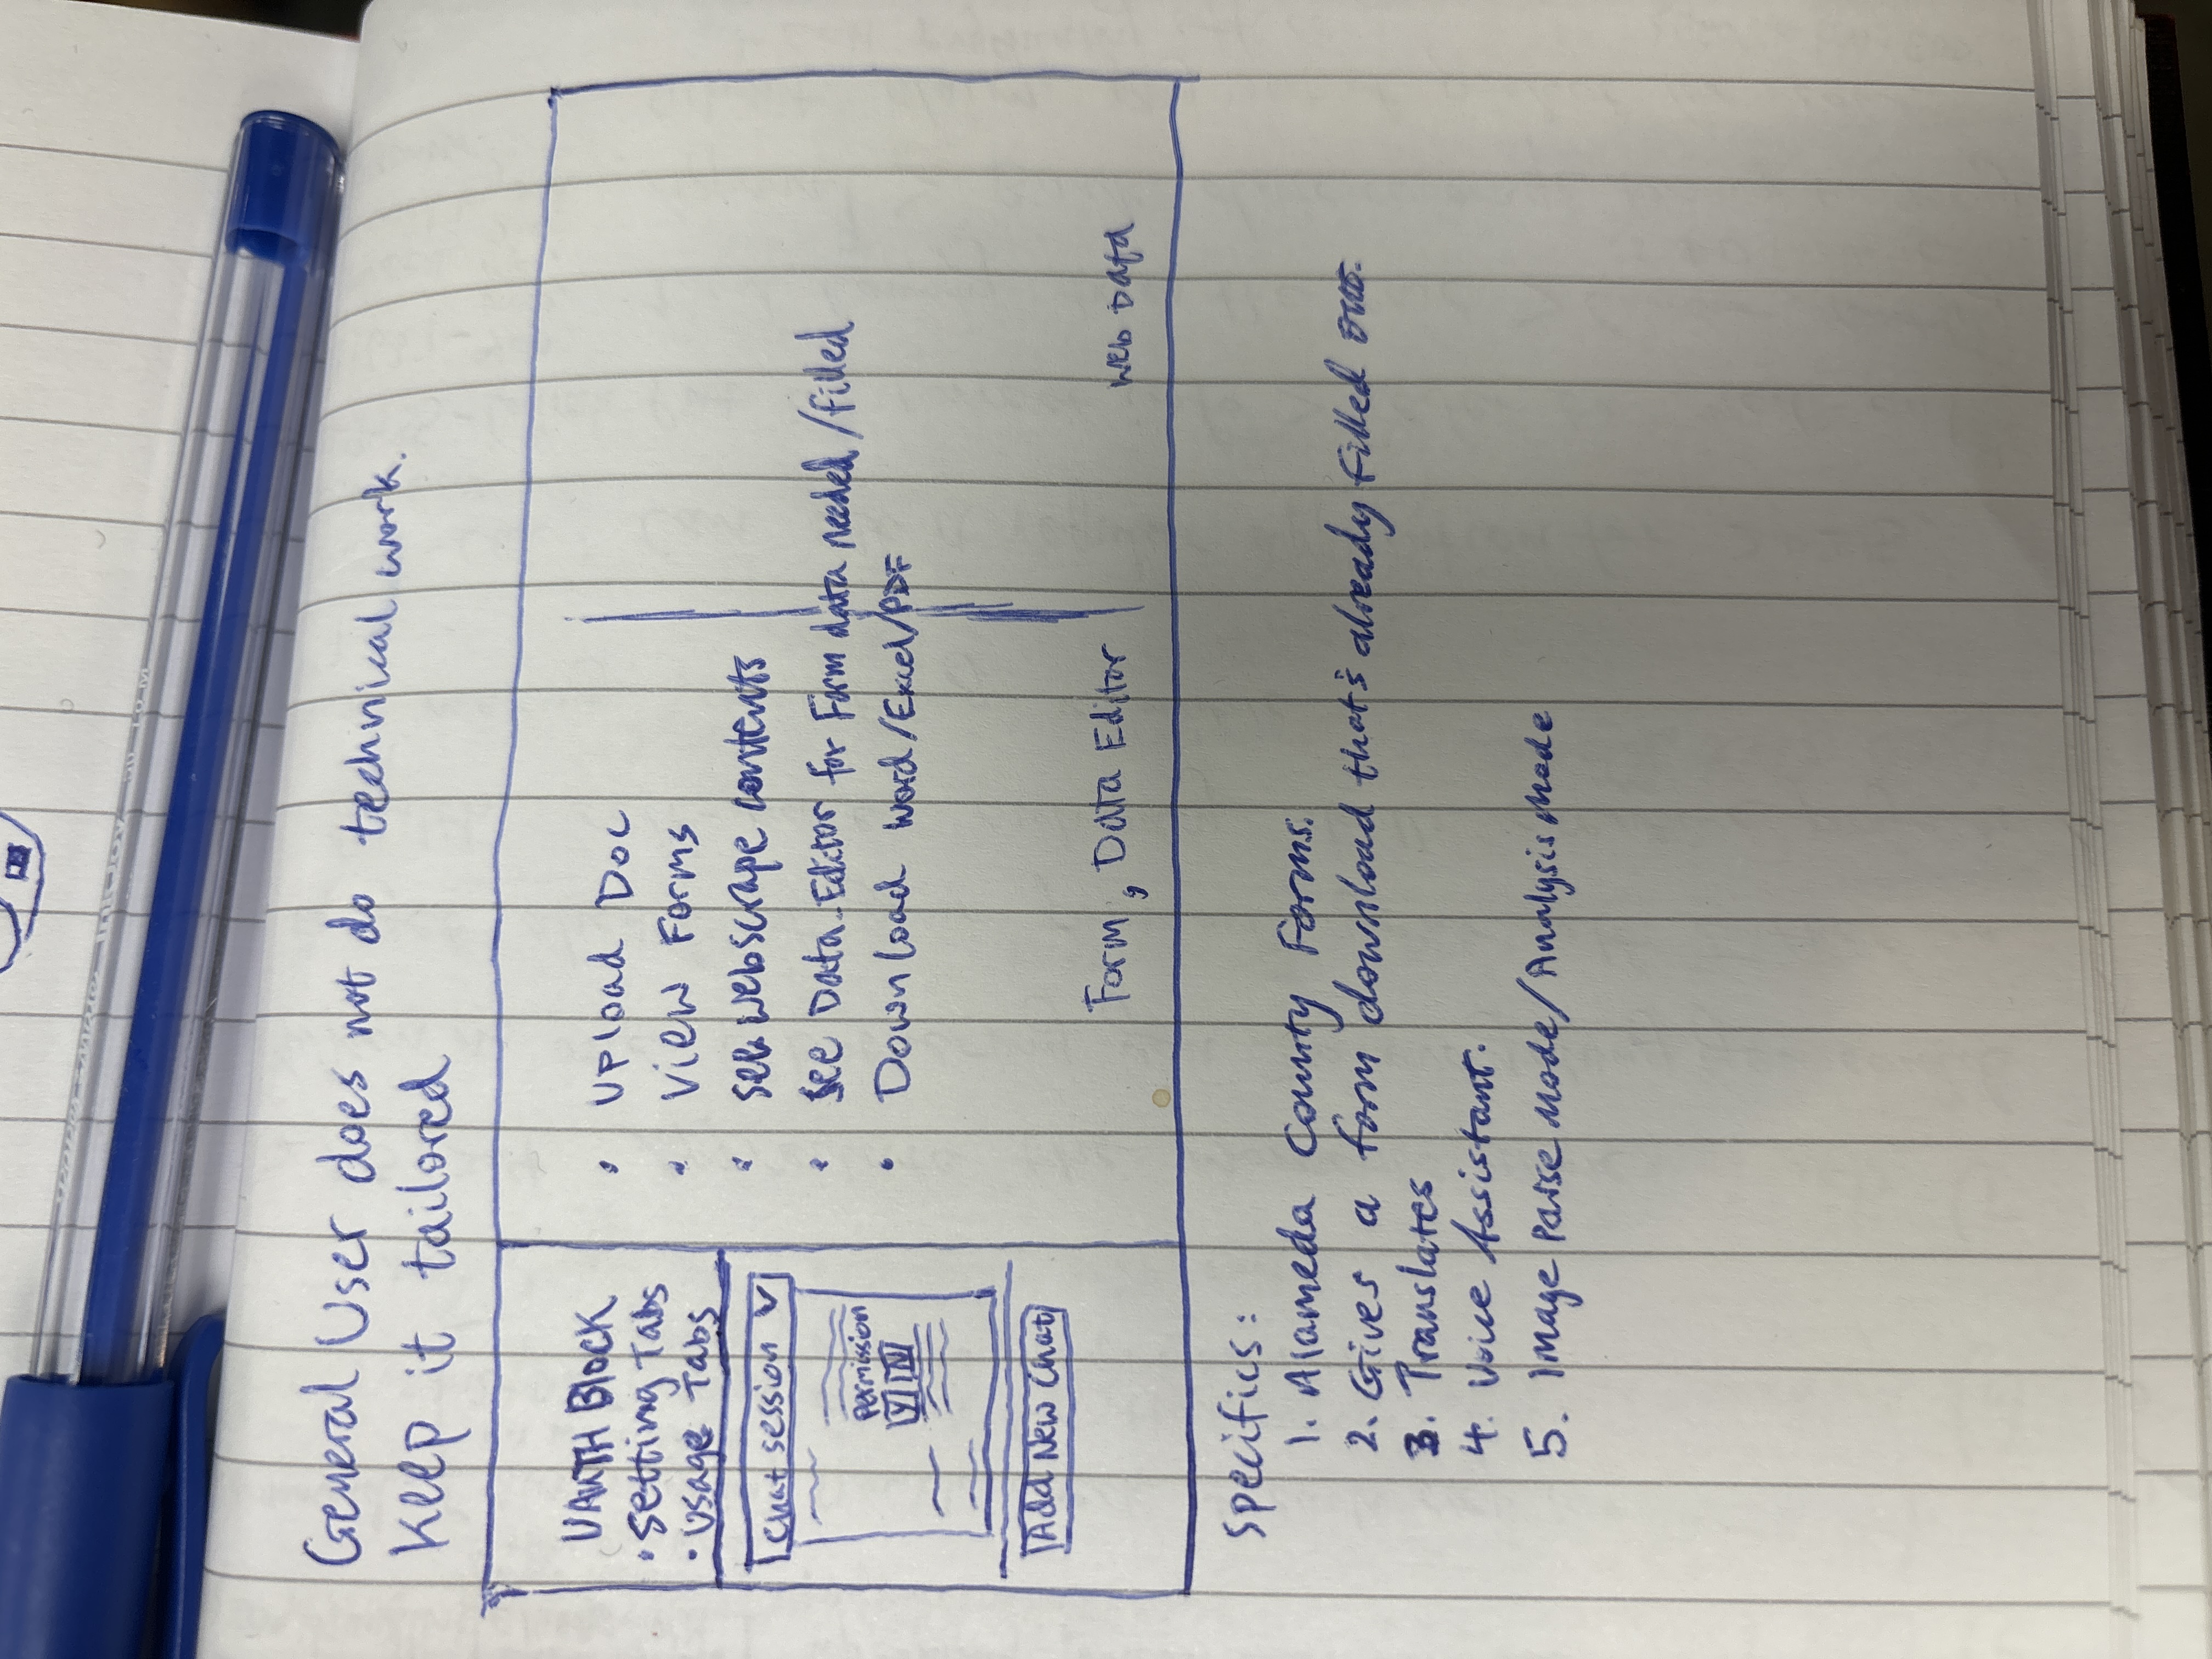 General User does not do technical work.
Keep it tailored
UAUTH Block
• Setting Tabs
• Usage Tabs
Chat session
Permission
Y N
Add New Chat
• Upload Doc
• View Forms
• see webscrape contents
• See Data Editor for Form data needed/filled
• Download Word/Excel/PDF
Form, Data Editor
Web Data
Specifics:
1. Alameda County Forms.
2. Gives a form download that's already filled out.
3. Translates
4. Voice Assistant.
5. Image Parse Mode/Analysis Mode